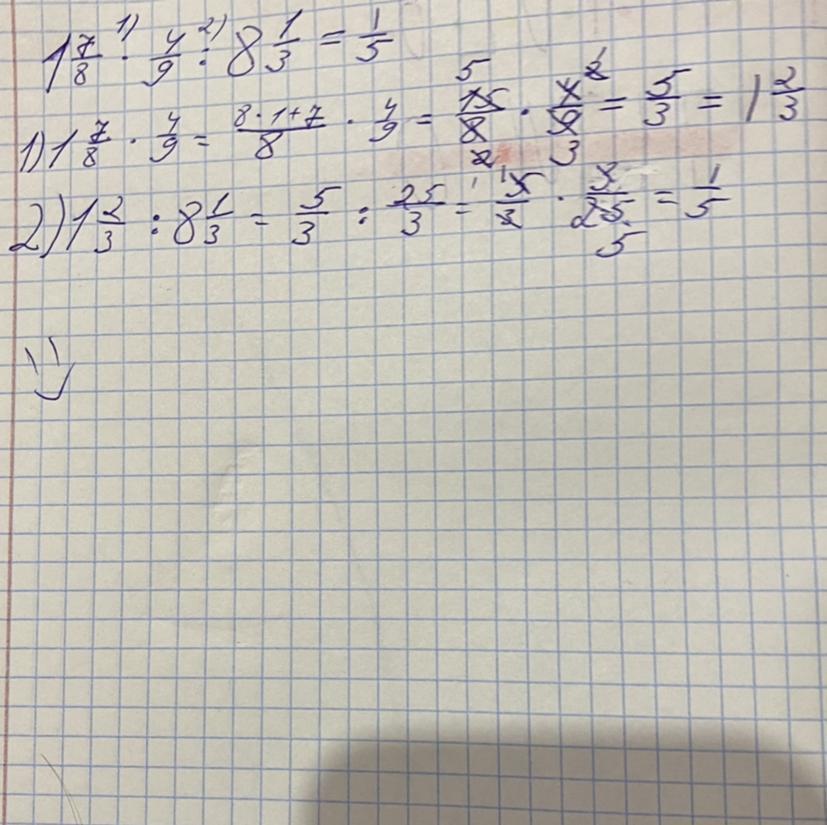 1 7/8 · 4/9 : 8 1/3 = 1/5
1) 1 7/8 · 4/9 = (8·1+7)/8 · 4/9 = 15/8 · 4/9 = 5/3 = 1 2/3
2) 1 2/3 : 8 1/3 = 5/3 : 25/3 = 5/3 · 3/25 = 1/5